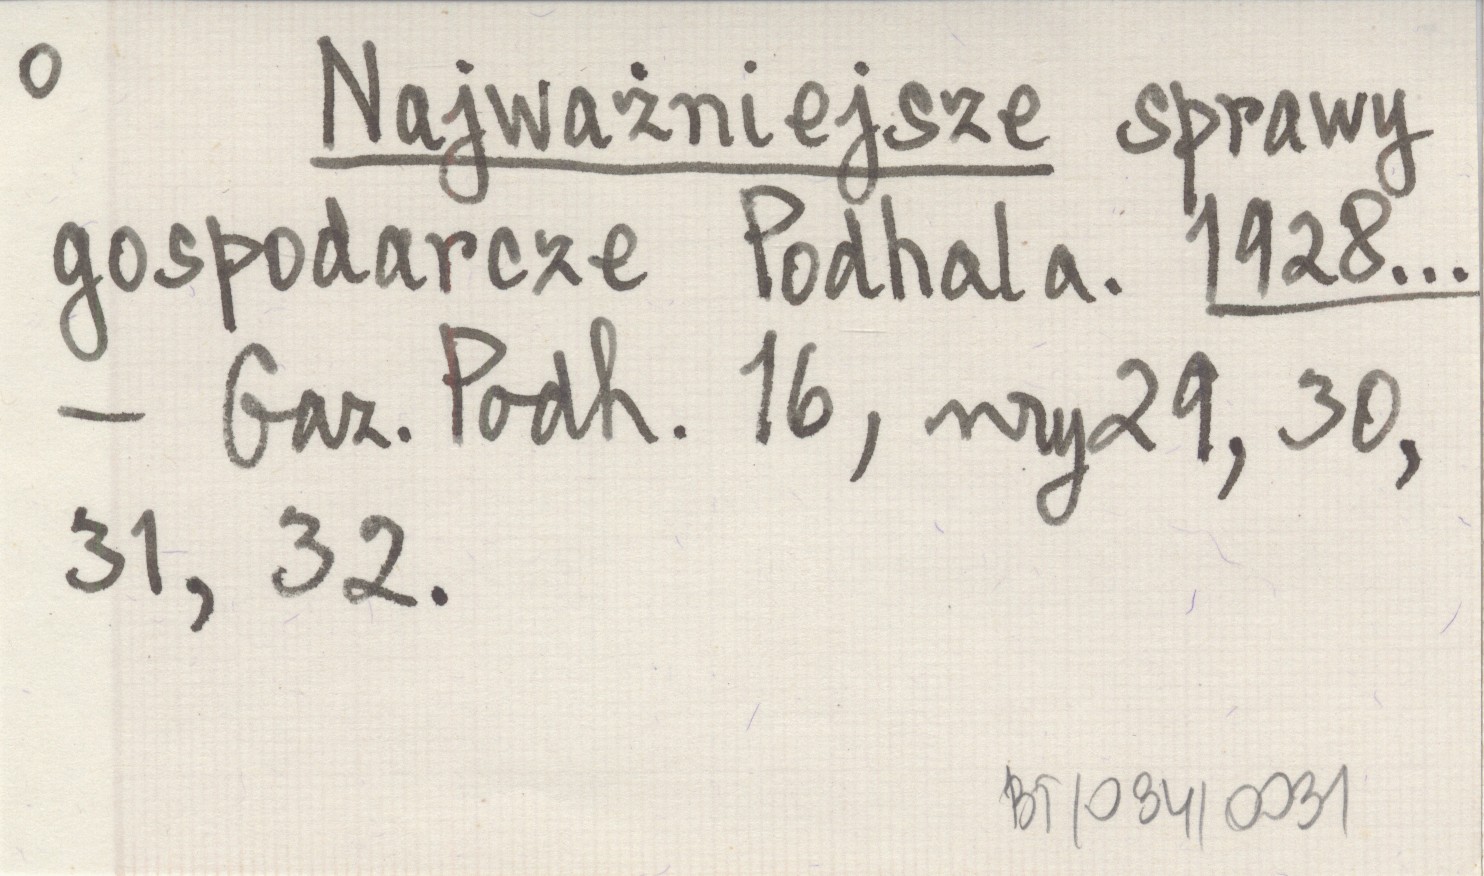 o Najważniejsze sprawy
gospodarcze Podhala. 1928...
— Gaz. Podh. 16, nry 29, 30,
31, 32.
BT/034/0031